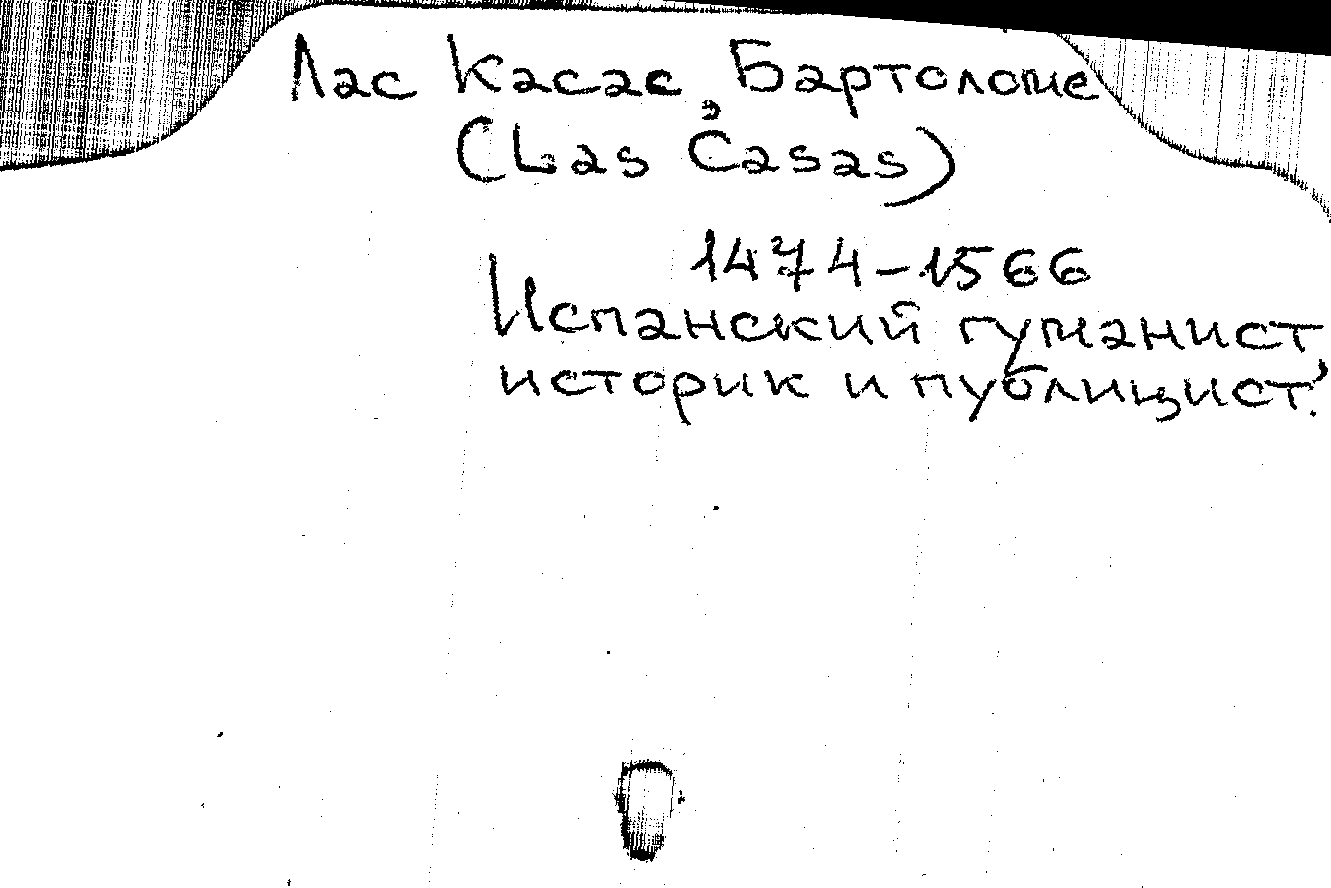 Лас Касас, Бартоломе
(Las Casas)
1474-1566
Испанский гуманист,
историк и публицист.